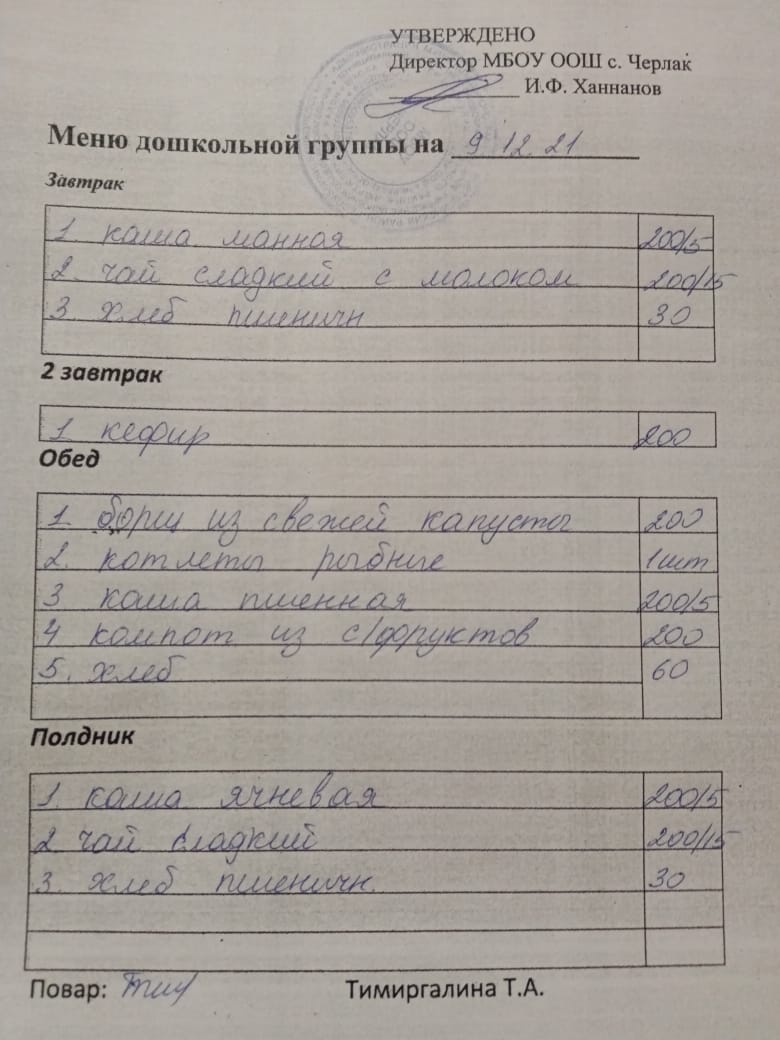 УТВЕРЖДЕНО
Директор МБОУ ООШ с. Черлак
И.Ф. Ханнанов
Меню дошкольной группы на 9 12. 21
Завтрак
1. каша манная 200/5
2. чай сладкий с молоком 200/15
3. хлеб пшеничн 30
2 завтрак
1 кефир 200
Обед
1. борщ из свежей капусты 200
2. котлеты рыбные 1 шт
3 каша пшенная 200/5
4 компот из с/фруктов 200
5. хлеб 60
Полдник
1. каша ячневая 200/5
2 чай сладкий 200/15
3. хлеб пшеничн. 30
Повар: Тимиргалина Т.А.